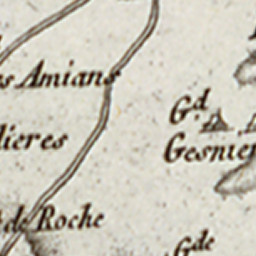 s Amians
Gd
lieres
Gesnier
de Roche
Gde